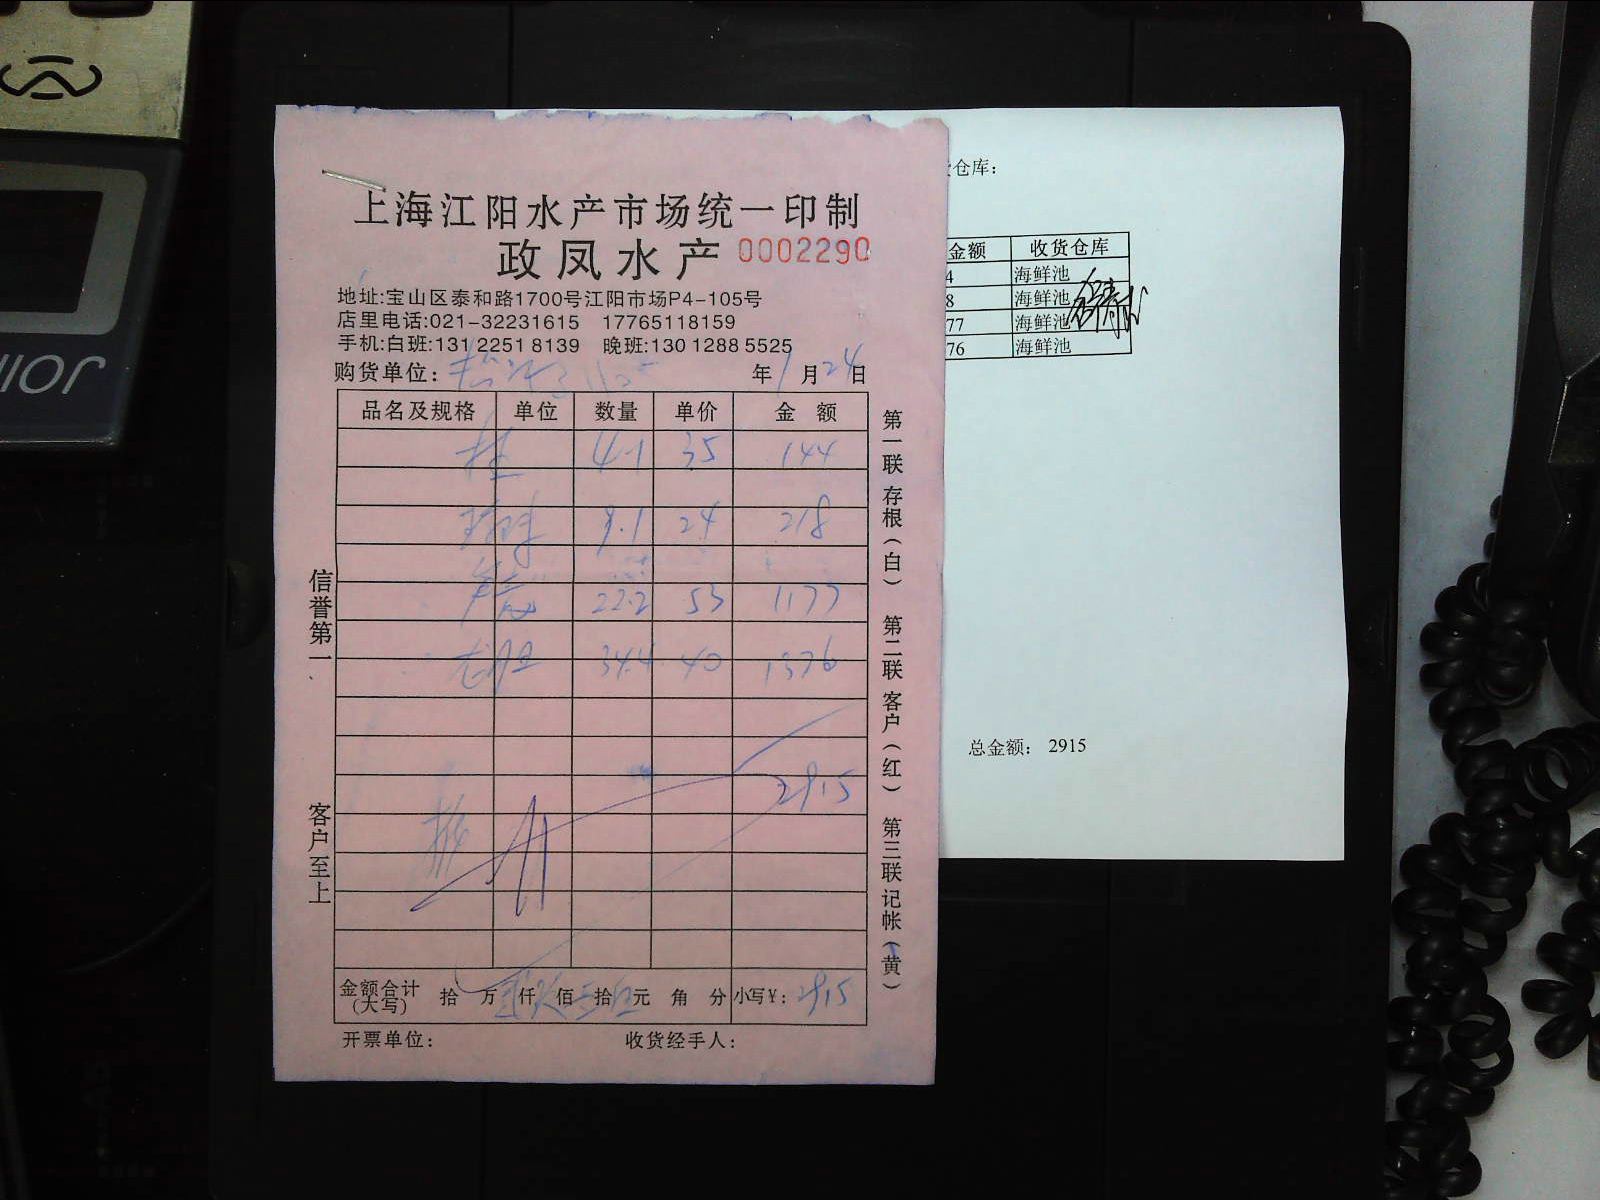 上海江阳水产市场统一印制
政凤水产 0002290
地址:宝山区泰和路1700号江阳市场P4-105号
店里电话:021-32231615 17765118159
手机:白班:131 2251 8139 晚班:130 1288 5525
购货单位: 年 1 月 24 日
品名及规格 单位 数量 单价 金额
桂 4.1 35 144
9.1 24 218
22.2 53 1177
34.4 40 1376
2915
金额合计(大写) 拾 万 仟 佰 拾 元 角 分 小写¥: 2915
开票单位: 收货经手人:
信誉第一
客户至上
第一联存根(白) 第二联客户(红) 第三联记帐(黄)
仓库:
金额 收货仓库
4 海鲜池
8 海鲜池
77 海鲜池
76 海鲜池
总金额: 2915
JOINI